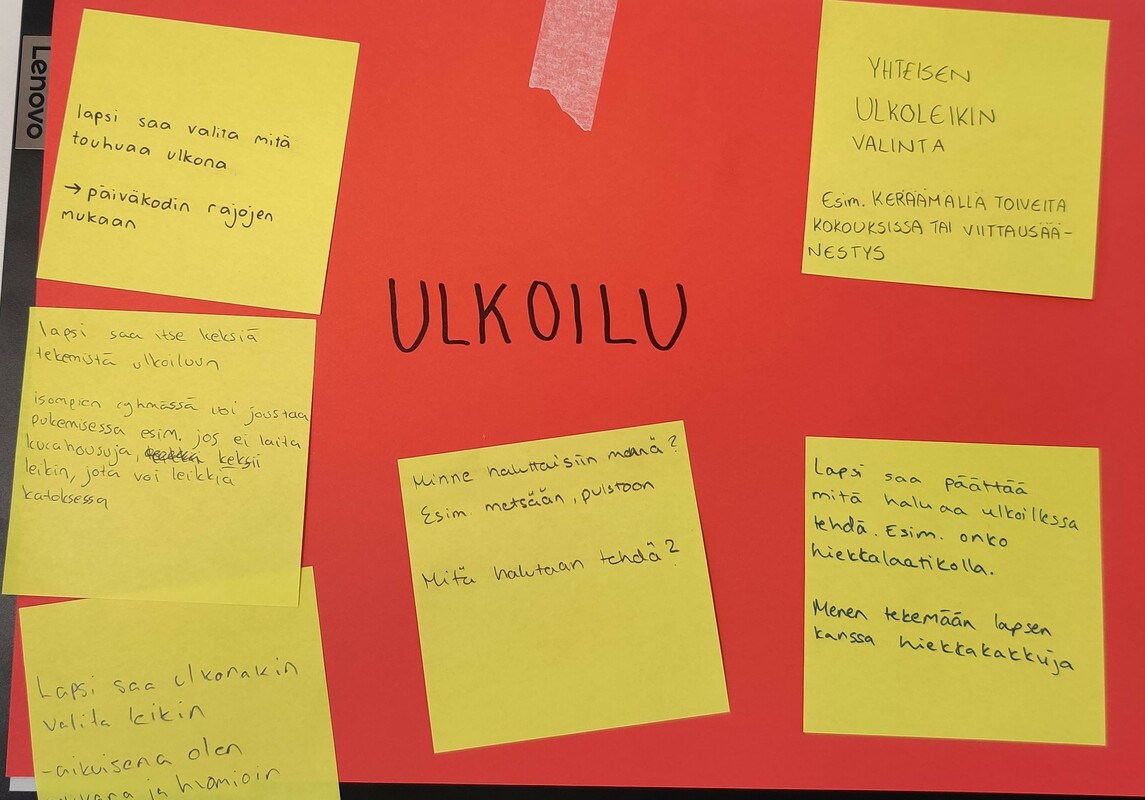 Lenovo
lapsi saa valita mitä
touhuaa ulkona
→ päiväkodin rajojen
mukaan
YHTEISEN
ULKOLEIKIN
VALINTA
Esim. KERÄÄMÄLLÄ TOIVEITA
KOKOUKSISSA TAI VIITTAUSÄÄ-
NESTYS
ULKOILU
lapsi saa itse keksiä
tekemistä ulkoiluun
isompien ryhmässä voi joustaa
pukemisessa esim. jos ei laita
kurahousuja, keksii
leikin, jota voi leikkiä
katoksessa
Minne haluttaisiin mennä?
Esim. metsään, puistoon
Mitä halutaan tehdä?
Lapsi saa päättää
mitä haluaa ulkoillessa
tehdä. Esim. onko
hiekkalaatikolla.
Menen tekemään lapsen
kanssa hiekkakakkuja
Lapsi saa ulkonakin
valita leikin
-aikuisena olen
mukana ja huomioin